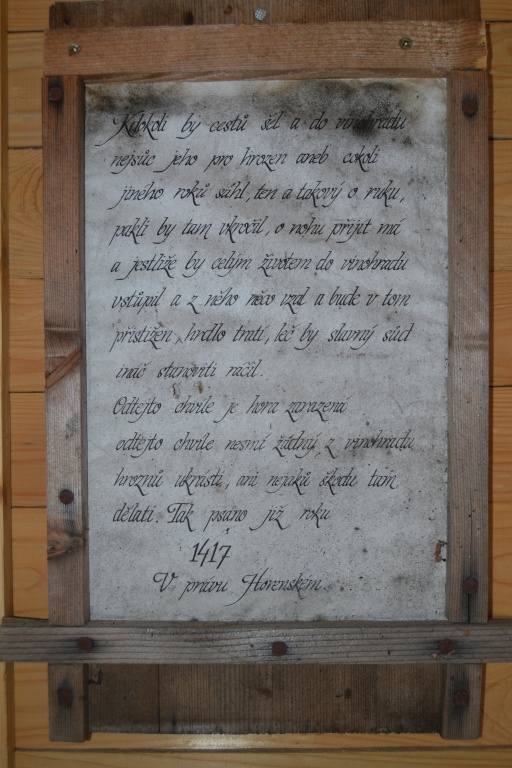 Kdokoli by cestů šel a do vinohradu
nejsůc jeho pro hrozen aneb cokoli
jiného roků sáhl, ten a takový o ruku,
pakli by tam vkročil, o nohu přijít má
a jestliže by celým životem do vinohradu
vstůpil a z něho něco vzal a bude v tom
přistižen, hrdlo tratí, leč by slavný sůd
ináč stanoviti ráčil.
Odtejto chvíle je hora zaražená
odtejto chvíle nesmí žádnaj z vinohradu
hroznů ukrásti, ani nejaků škodu tam
dělati. Tak psáno již roku
1417
V právu Horenském